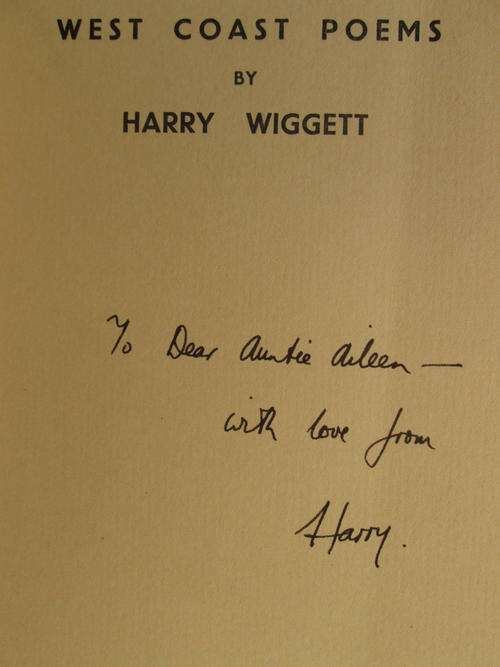 WEST COAST POEMS
BY
HARRY WIGGETT
To Dear Auntie Aileen —
with love from
Harry.